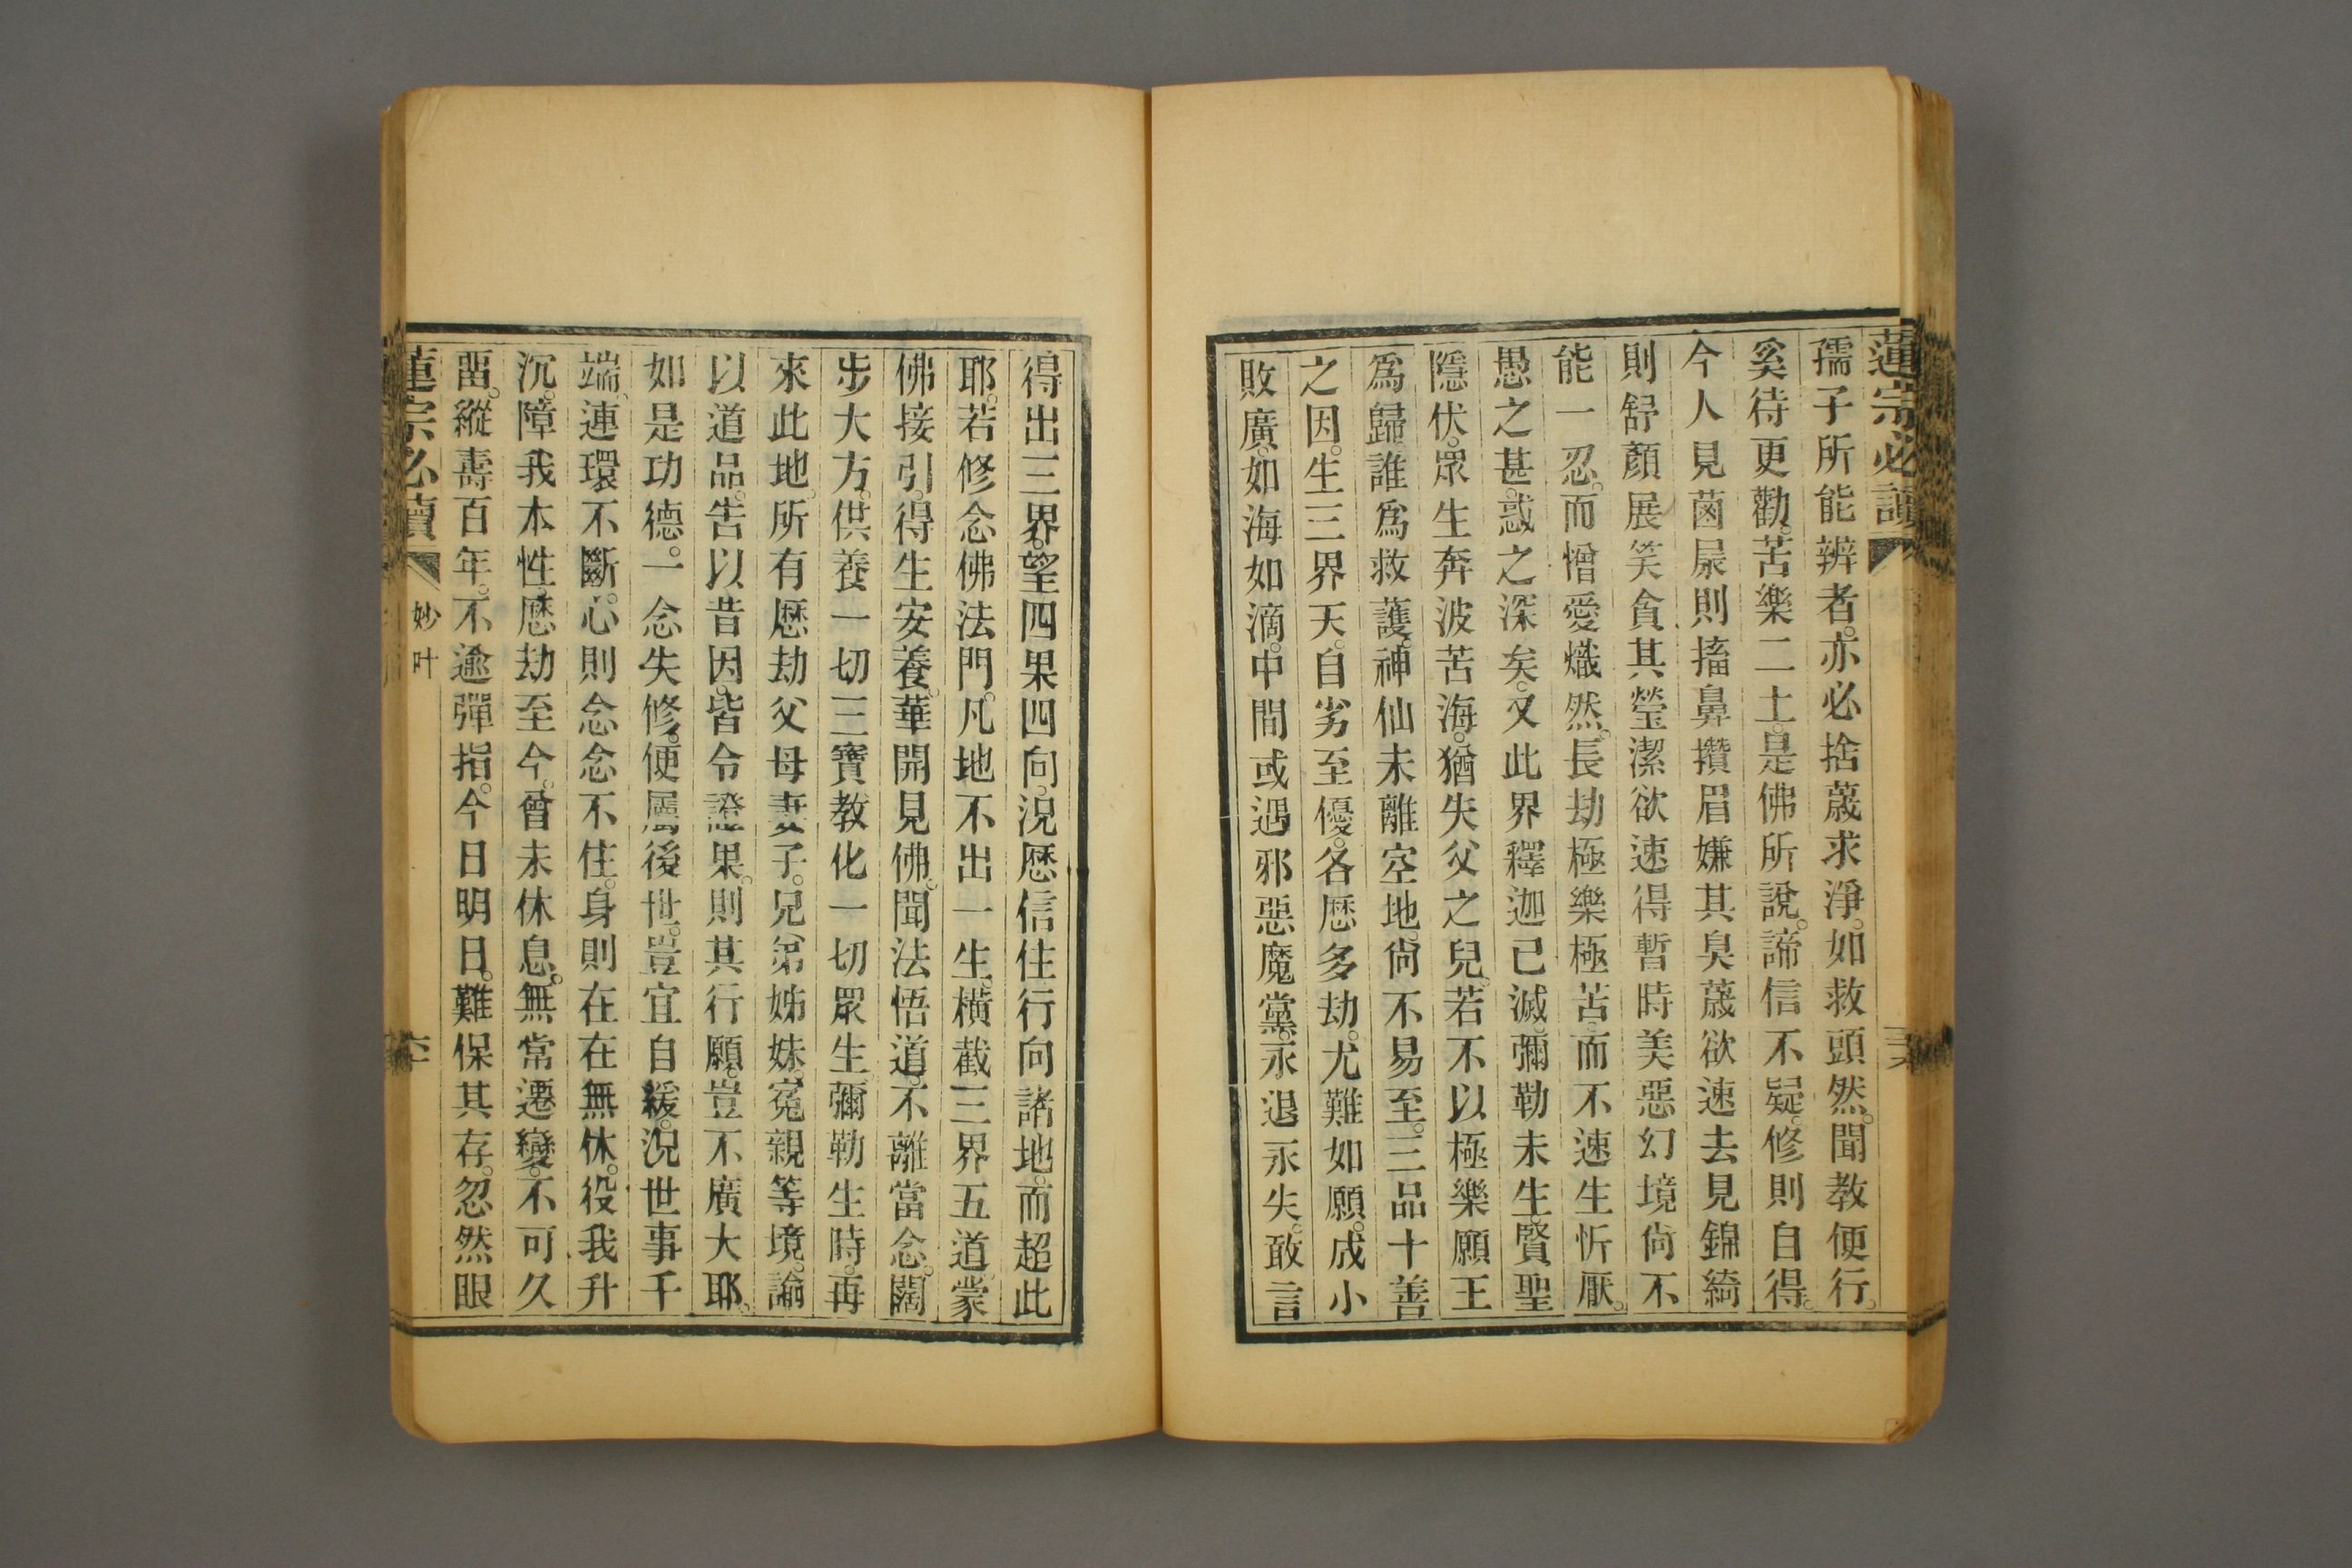 蓮宗必讀
孺子所能辨者。亦必捨薉求淨。如救頭然。聞教便行。
奚待更勸。苦樂二土。是佛所說。諦信不疑。修則自得。
今人見菌𡱁則搐鼻攢眉嫌其臭薉欲速去見錦綺
則舒顏展笑貪其瑩潔欲速得暫時美惡幻境尙不
能一忍。而憎愛熾然。長劫極樂極苦。而不速生忻厭。
愚之甚。惑之深矣。又此界釋迦已滅。彌勒未生。賢聖
隱伏。眾生奔波苦海。猶失父之兒。若不以極樂願王
爲歸。誰爲救護。神仙未離空地。尙不易至。三品十善
之因。生三界天。自劣至優。各歷多劫。尤難如願。成小
敗廣。如海如滴。中間或遇邪惡魔黨。永退永失。敢言
得出三界。望四果四向。況歷信住行向諸地。而超此
耶。若修念佛法門。凡地不出一生。橫截三界五道。蒙
佛接引。得生安養。華開見佛。聞法悟道。不離當念。闊
步大方。供養一切三寶教化一切眾生彌勒生時。再
來此地。所有歷劫父母妻子。兄弟姊妹。冤親等境。諭
以道品。告以昔因。皆令證果。則其行願。豈不廣大耶。
如是功德。一念失修。便屬後世。豈宜自緩。況世事千
端。連環不斷。心則念念不住。身則在在無休。役我升
沉。障我本性。歷劫至今。曾未休息。無常遷變。不可久
畱。縱壽百年。不逾彈指。今日明日。難保其存。忽然眼
蓮宗必讀
妙叶